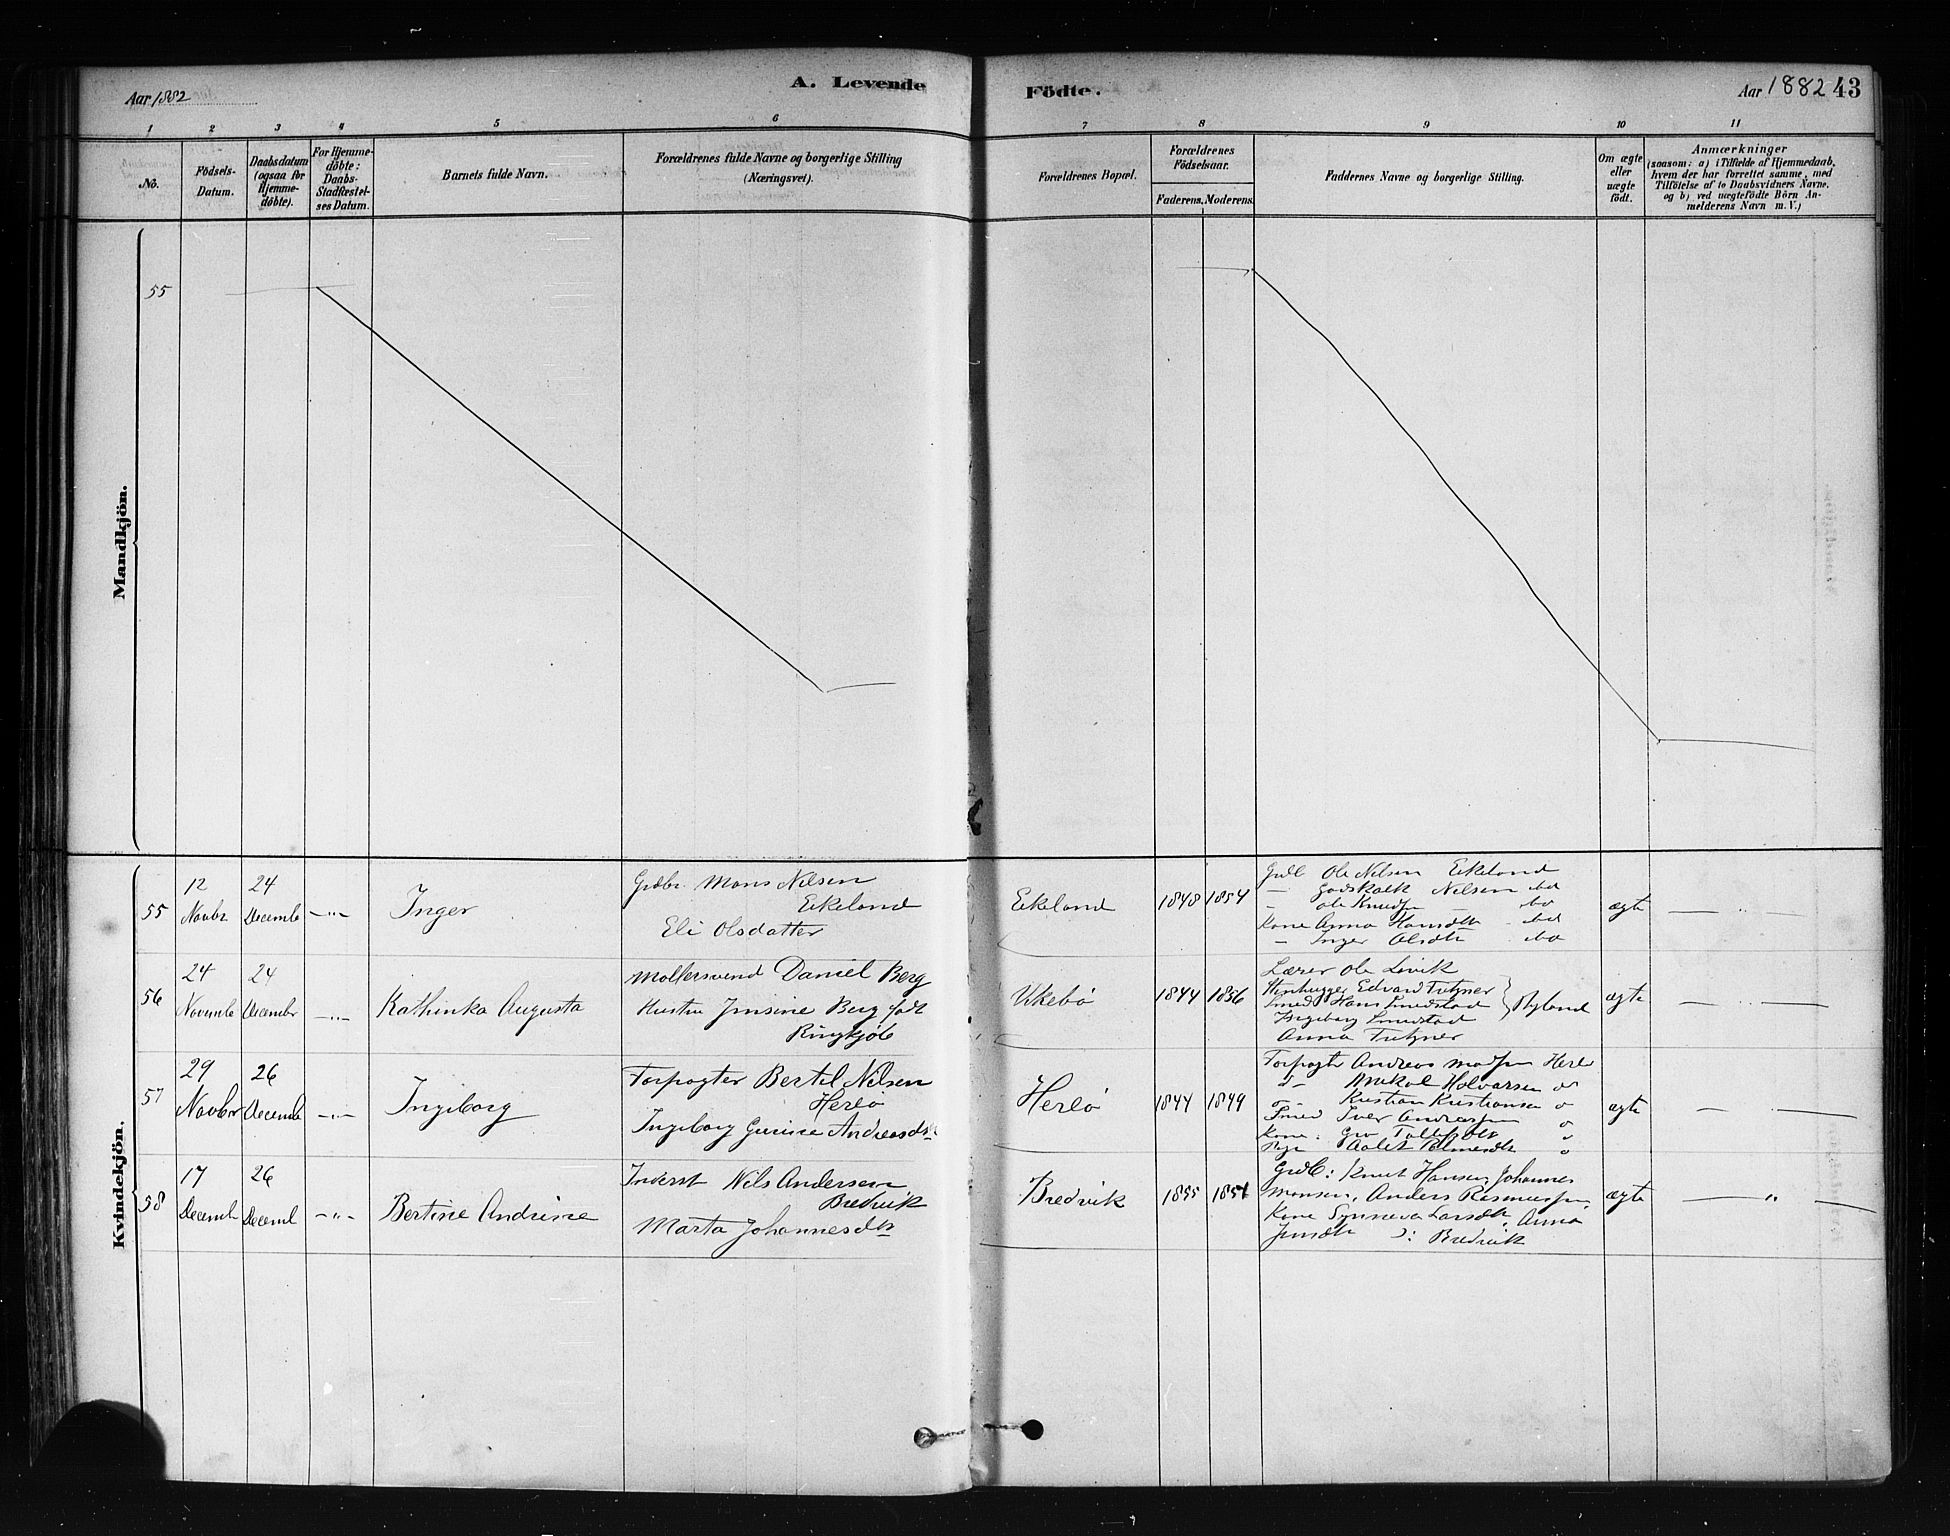 Aar 1882
A. Levende
Födte.
Aar 1882 43
1 2 3 4 5 6 7 8 9 10 11
No.
Födsels-
Datum.
Daabsdatum
(ogsaa for
Hjemme-
döbte).
For Hjemme-
döbte:
Daabs-
Stadfæstel-
ses Datum.
Barnets fulde Navn.
Forældrenes fulde Navne og borgerlige Stilling
(Næringsvei).
Forældrenes Bopæl.
Forældrenes
Födselsaar.
Faderens. Moderens.
Faddernes Navne og borgerlige Stilling.
Om ægte
eller
uægte
födt.
Anmærkninger
(saasom: a) i Tilfælde af Hjemmedaab,
hvem der har forrettet samme, med
Tilföielse af to Daabsvidners Navne.
og b) ved uægtefödte Börn An-
melderens Navn m. V.)
Mandkjön.
55
Kvindekjön.
55
12
Novbr
24
Decembe
Inger
Grdbr. Mons Nilsen
Eikeland
Eli Olsdatter
Eikeland
1848 1854
Ole Nilsen Eikeland
Godskalk Nilsen ibd
Ole Knudsen
Kone Anna Hansdtr ibd
Inger Olsdtr
ægte
56
24
Novembe
24
Decembr
Kathinka Augusta
Møllersvend Daniel Berg
Hustru Jensine Berg født
Ringkjøb
Ukebø
1844 1856
Lærer Ole Levik
Stenhugger Edvard
Smed Hans Smedstad
Ingeborg Smedstad
Anna
Ryland
ægte
57
29
Novbr
26
Decembe
Ingeborg
Forpagter Bertel Nilsen
Herlø
Ingeborg Gurine Andreasdtr
Herlö
1844 1849
Forpagter Andreas Madsen Herlø
Mikal Halvorsen do
Kristian Kristiansen
Smed Iver Andreasen
Kone
ægte
58
17
Decemb
26
Decemb
Bertine Andrine
Inderst Nils Andersen
Bredvik
Marta Johannesdtr
Bredvik
1855 1851
Grdb: Knut Hansen, Johannes
Monsen, Anders Rasmussen,
Kone Synneva Larsdtr, Anna
Jensdtr : Bredvik
ægte